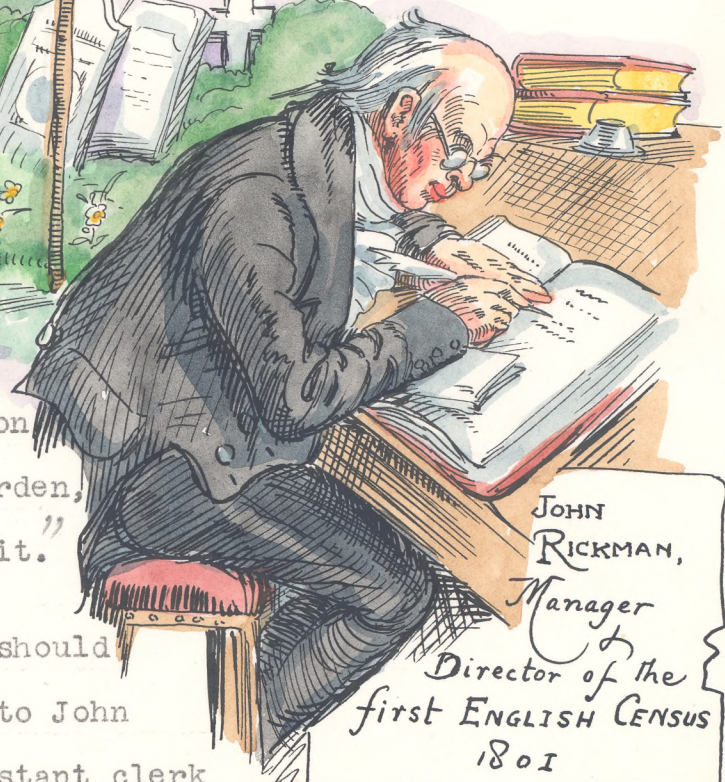 on
rden,
it."
should
to John
stant clerk
JOHN
RICKMAN,
Manager
&
Director of the
first ENGLISH CENSUS
1801